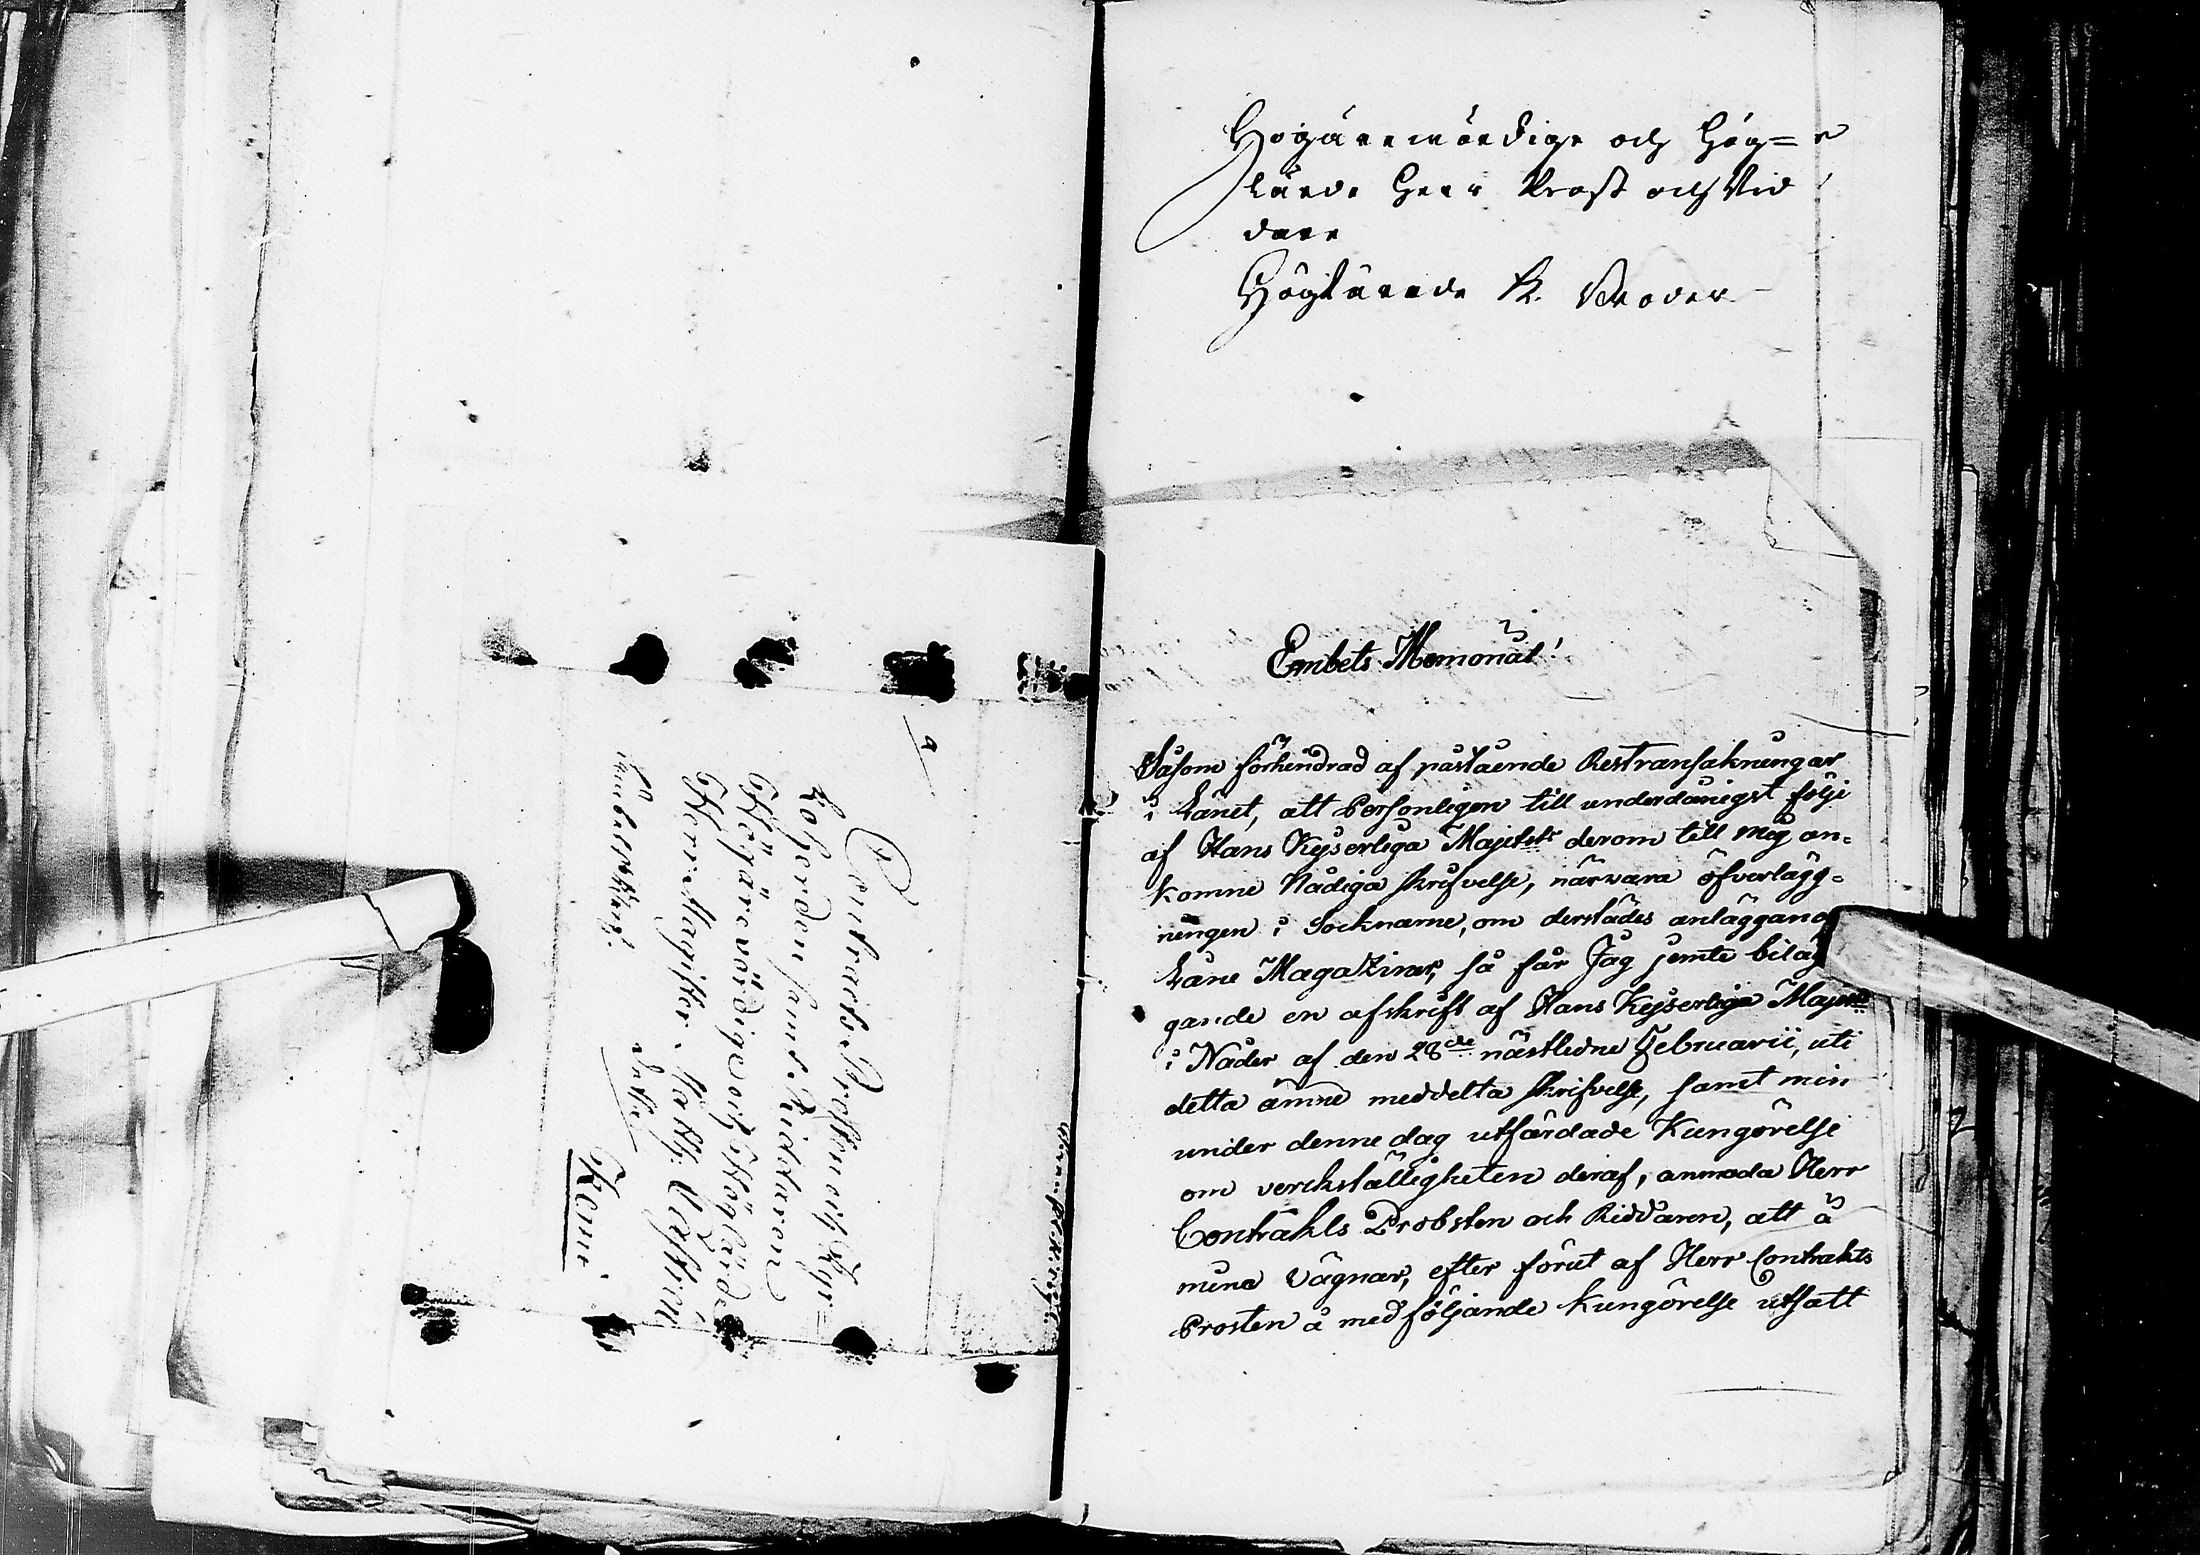 Contracts Prosten och Kyr=
koherden samt Riddaren
Högärevördige och Höglärde
Herr Magister Matth: Castrén
Embetsskrif.
Kemi
Högärewördige och Hög=
lärde Herr Prost och Rid
dare
Högtärade K. Broder
Embets Memorial!
Såsom förhindrad af påstående Restransakningar
i Länet, att Personligen till underdånigst följe
af Hans Kejserliga Majestets derom till mig an-
komne Nådiga skrifvelse, närvara öfverlägg-
ningen i Socknarne, om derstädes anläggand
Låne Magaziner, så får Jag jemte bilag
gande en afskrift af Hans Kejserliga Majest:s
i Nåder af den 28de nästledne Februarii, uti
detta ämne meddelta skrifvelse, samt min
under denne dag utfärdade Kungörelse
om verkställigheten deraf, anmoda Herr
Contrakts Probsten och Riddaren, att å
mina Vägnar, efter förut af Herr Contrakts
Prosten å medföljande kungörelse utsatt